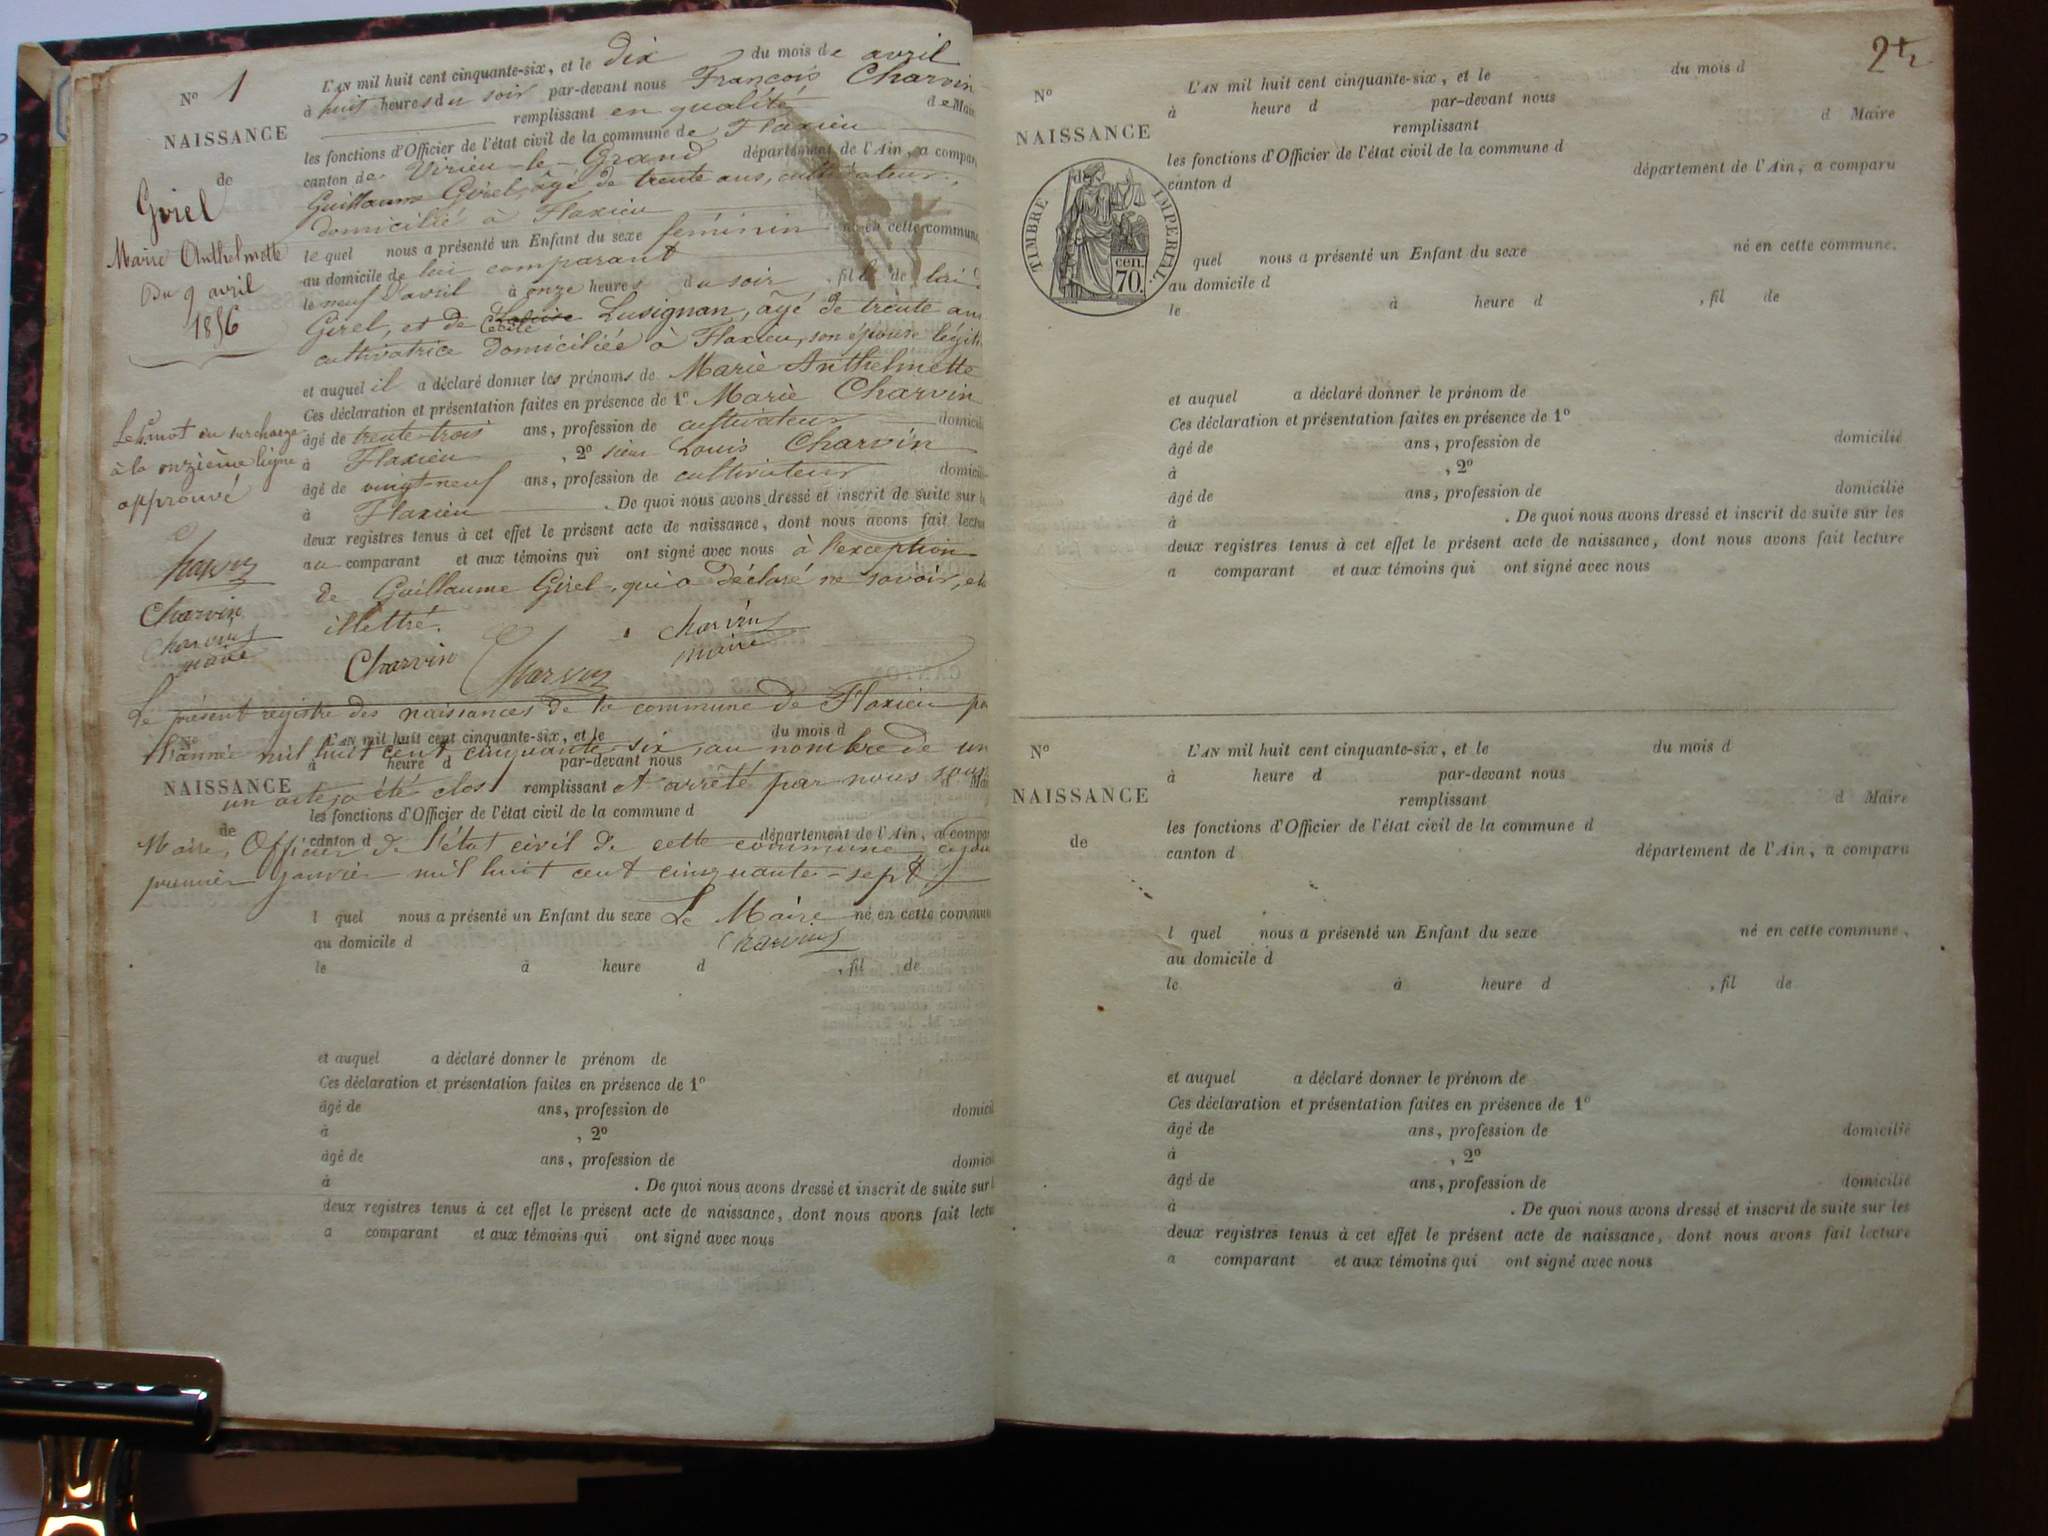 N° 1
NAISSANCE
de
Girel
Marie Anthelmette
Du 9 avril
1856
L'AN mil huit cent cinquante-six, et le dix du mois de avril
à huit heures du soir par-devant nous François Charvin
remplissant en qualité de Maire
les fonctions d'Officier de l'état civil de la commune de Flaxieu
canton de Virieu-le-Grand département de l'Ain, a compar
Guillaume Girel, âgé de trente ans, cultivateur,
domicilié à Flaxieu
le quel nous a présenté un Enfant du sexe féminin né en cette commune,
au domicile de lui comparant
le neuf d'avril à onze heures du soir, fille de lui
Girel, et de Cécile Lusignan, âgé de trente ans
cultivatrice domiciliée à Flaxieu, son épouse légit
et auquel il a déclaré donner les prénoms de Marie Anthelmette
Ces déclaration et présentation faites en présence de 1° Marie Charvin
âgé de trente-trois ans, profession de cultivateur domicili
à Flaxieu, 2° sieur Louis Charvin
âgé de vingt-neuf ans, profession de cultivateur domicili
à Flaxieu. De quoi nous avons dressé et inscrit de suite sur l
deux registres tenus à cet effet le présent acte de naissance, dont nous avons fait lectu
au comparant et aux témoins qui ont signé avec nous à l'exception
de Guillaume Girel, qui a déclaré ne savoir,
illettré.
Charvin Charvin Charvin
maire
Le mot en surcharge
à la onzième ligne
approuvé
Charvin
Charvin
Charvin
maire
Le présent registre des naissances de la commune de Flaxieu po
l'année mil huit cent cinquante-six, au nombre de un
un acte, a été clos et arrêté par nous sous
Maire, Officier de l'état civil de cette commune, ce jour
premier janvier mil huit cent cinquante-sept
Le Maire
Charvin
N°
NAISSANCE
de
L'AN mil huit cent cinquante-six, et le du mois d
à heure d par-devant nous
remplissant d Mai
les fonctions d'Officier de l'état civil de la commune d
canton d département de l'Ain, a compar
l quel nous a présenté un Enfant du sexe né en cette commun
au domicile d
le à heure d , fil de
et auquel a déclaré donner le prénom de
Ces déclaration et présentation faites en présence de 1°
âgé de ans, profession de domicil
à , 2°
âgé de ans, profession de domicil
à . De quoi nous avons dressé et inscrit de suite sur l
deux registres tenus à cet effet le présent acte de naissance, dont nous avons fait lectu
a comparant et aux témoins qui ont signé avec nous
N°
NAISSANCE
de
TIMBRE IMPERIAL
cen.
70.
L'AN mil huit cent cinquante-six, et le du mois d
à heure d par-devant nous
remplissant d Maire
les fonctions d'Officier de l'état civil de la commune d
canton d département de l'Ain, a comparu
quel nous a présenté un Enfant du sexe né en cette commune,
au domicile d
le à heure d , fil de
et auquel a déclaré donner le prénom de
Ces déclaration et présentation faites en présence de 1°
âgé de ans, profession de domicilié
à , 2°
âgé de ans, profession de domicilié
à . De quoi nous avons dressé et inscrit de suite sur les
deux registres tenus à cet effet le présent acte de naissance, dont nous avons fait lecture
a comparant et aux témoins qui ont signé avec nous
N°
NAISSANCE
de
L'AN mil huit cent cinquante-six, et le du mois d
à heure d par-devant nous
remplissant d Maire
les fonctions d'Officier de l'état civil de la commune d
canton d département de l'Ain, a comparu
l quel nous a présenté un Enfant du sexe né en cette commune,
au domicile d
le à heure d , fil de
et auquel a déclaré donner le prénom de
Ces déclaration et présentation faites en présence de 1°
âgé de ans, profession de domicilié
à , 2°
âgé de ans, profession de domicilié
à . De quoi nous avons dressé et inscrit de suite sur les
deux registres tenus à cet effet le présent acte de naissance, dont nous avons fait lecture
a comparant et aux témoins qui ont signé avec nous